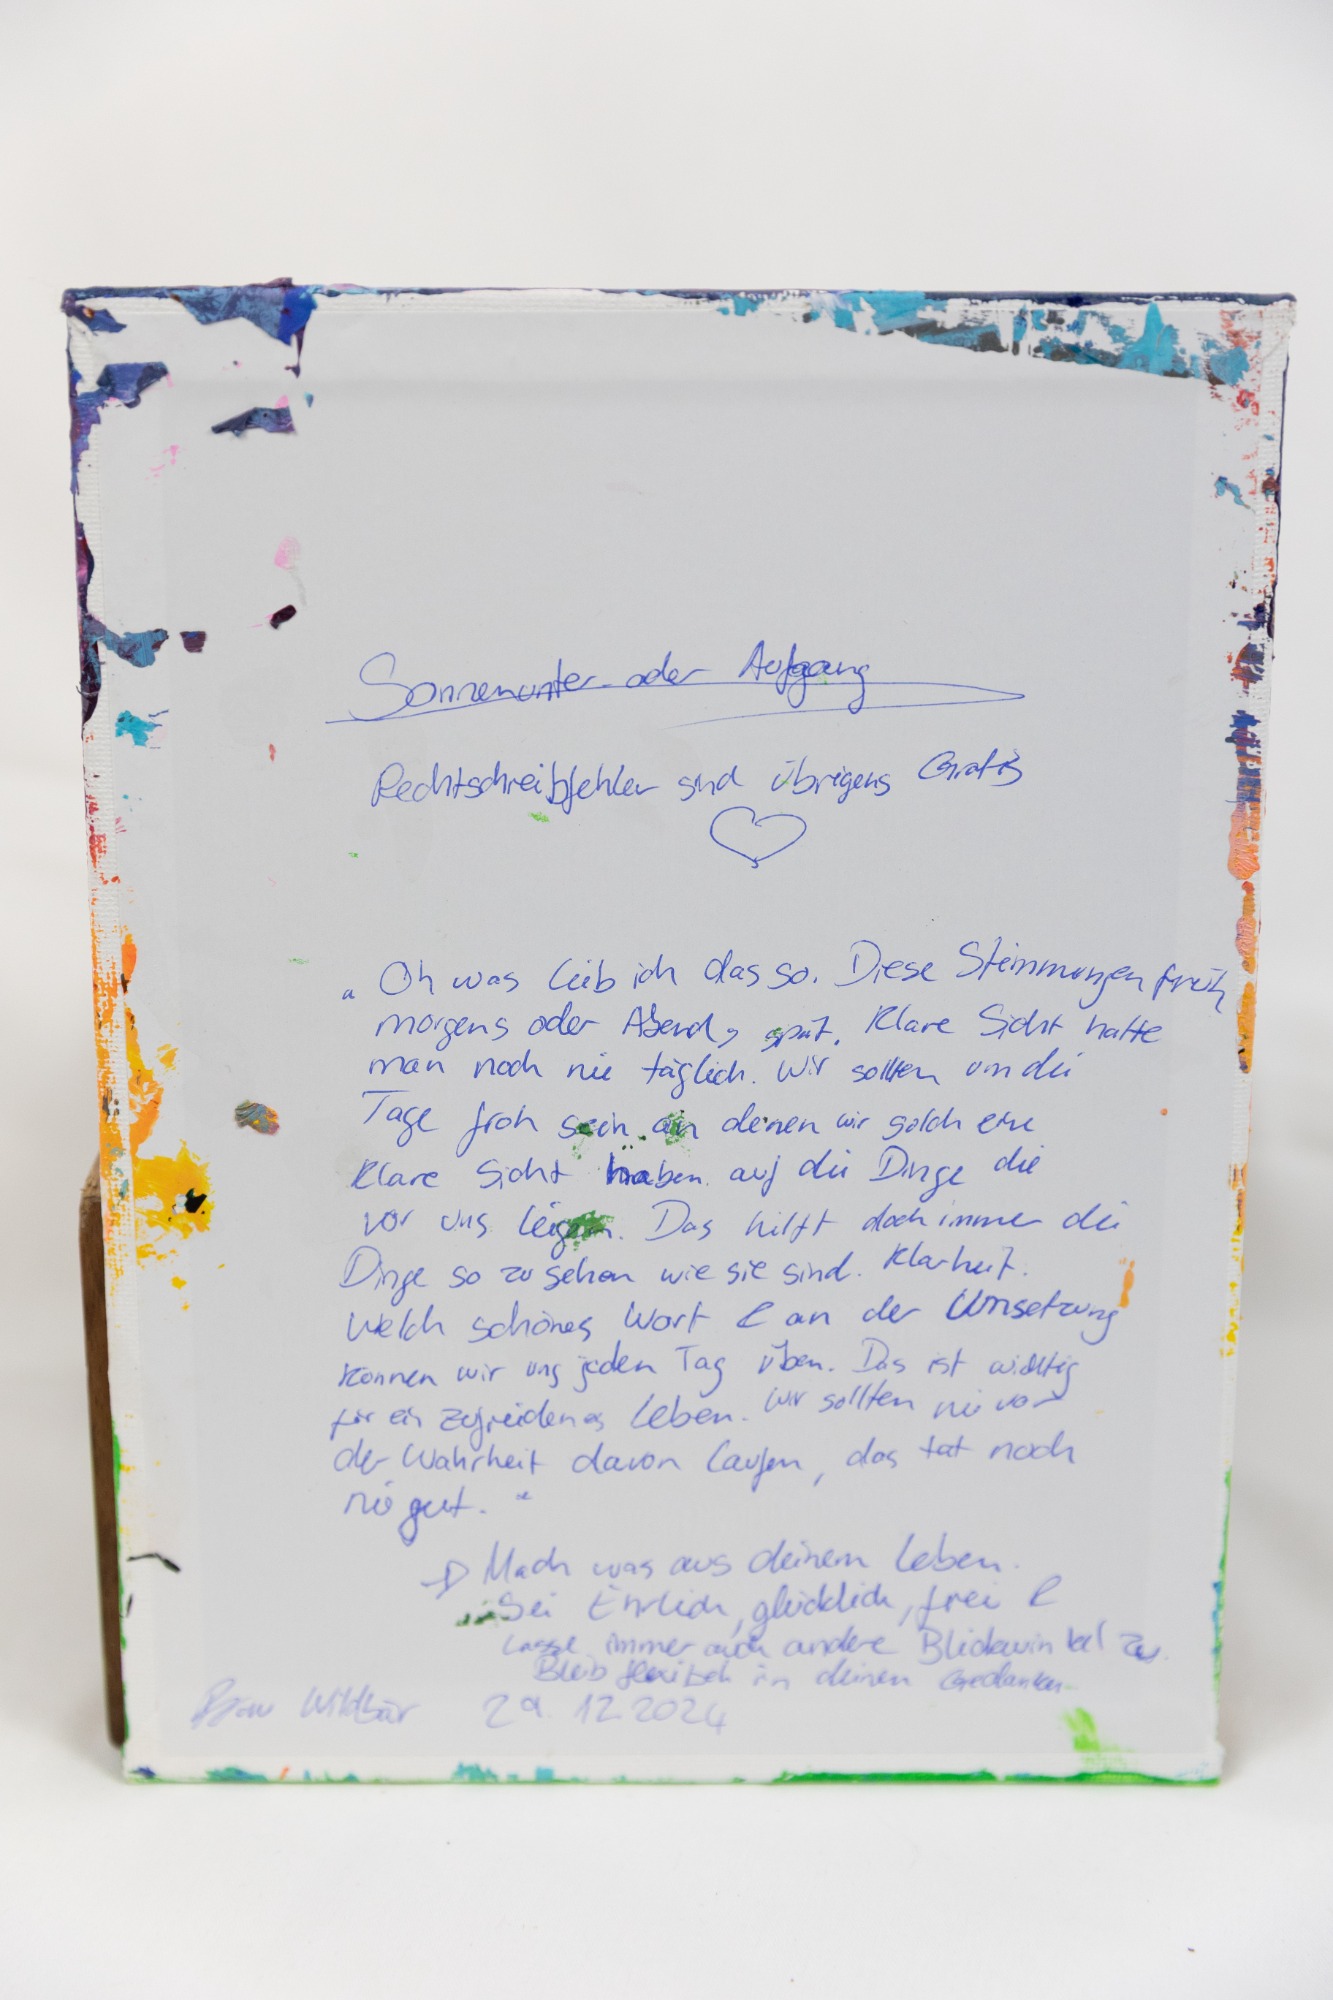 Sonnenunter- oder Aufgang
Rechtschreibfehler sind übrigens Gratis
"Oh was leib ich das so. Diese Stimmungen früh
morgens oder Abends spät. Klare Sicht hatte
man noch nie täglich. Wir sollten um die
Tage froh sein an denen wir solch eine
klare Sicht haben auf die Dinge die
vor uns leigen. Das hilft doch immer die
Dinge so zu sehen wie sie sind. Klarheit.
Welch schönes Wort & an der Umsetzung
können wir uns jeden Tag üben. Das ist wichtig
für ein zufreidenes Leben. Wir sollten nie vor
der Wahrheit davon laufen, das tat noch
nie gut."
→ Mach was aus deinem Leben.
Sei Ehrlich, glücklich, frei &
lasse immer auch andere Blickwinkel zu.
Bleib flexibel in deinen Gedanken
Wildbär 29.12.2024